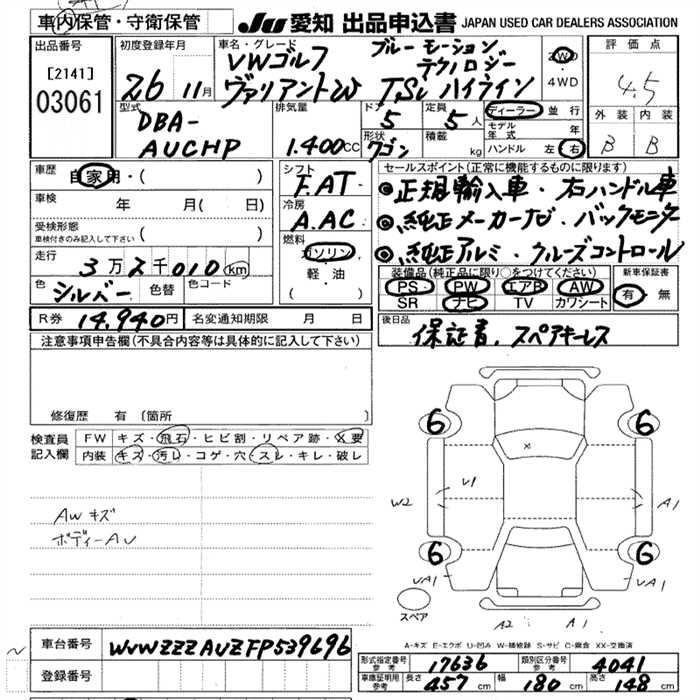 車内保管・守衛保管
JU 愛知 出品申込書 JAPAN USED CAR DEALERS ASSOCIATION
出品番号 [2141] 03061
初度登録年月 26 11月
車名・グレード VWゴルフ ブルーモーション
テクノロジー
ヴァリアント TSI ハイライン
2WD 4WD
評価点 4.5
外装 内装
B B
型式 DBA-AUCHP
排気量 1.400cc
ドア 5
定員 5人
形状 ワゴン
積載 kg
ディーラー 並行
モデル年式 年
ハンドル 左 右
車歴 自家用・( )
車検 年 月( 日)
受検形態 車検付きのみ記入して下さい ( )
走行 3万2千010km
色 シルバー 色替 色コード
シフト F.AT
冷房 A.AC
燃料 ガソリン
軽・油
( )
セールスポイント(正常に機能するものに限ります)
◎正規輸入車・右ハンドル車
◎純正メーカーナビ・バックモニター
◎純正アルミ・クルーズコントロール
装備品(純正品に限り○をつけてください)
PS PW エアB AW
SR ナビ TV カワシート
新車保証書 有・無
R券 14,940円 名変通知期限 月 日
後日品 保証書、スペアキーレス
注意事項申告欄(不具合内容等は具体的に記入して下さい)
修復歴 有 〔箇所
検査員記入欄
FW キズ・飛石・ヒビ割・リペア跡・X要
内装 キズ・汚レ・コゲ・穴・スレ・キレ・破レ
AWキズ
ボディーAU
6 6
6 6
W2 V1 A1
VA1 VA1
A2 A1
スペア
A-キズ E-エクボ U-凹み W-補修跡 S-サビ C-腐食 XX-交換済
車台番号 WVWZZZAUZFP539696
登録番号
型式指定番号 参考 17636
類別区分番号 参考 4041
車庫証明用 参考 長さ 457cm 幅 180cm 高さ 148cm